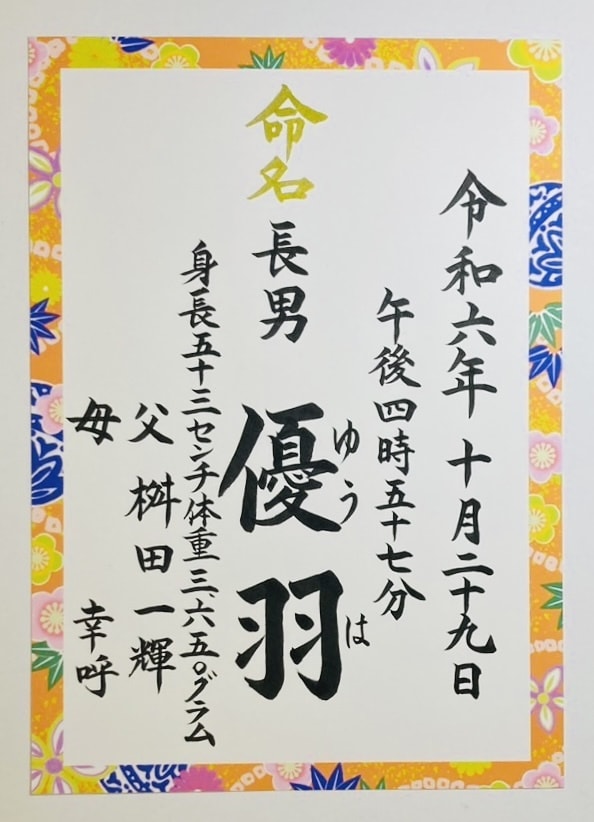 令和六年 十月二十九日
午後四時五十七分
命名
長男 優羽
ゆう は
身長五十三センチ体重三、六五〇グラム
父 桝田一輝
母 幸呼